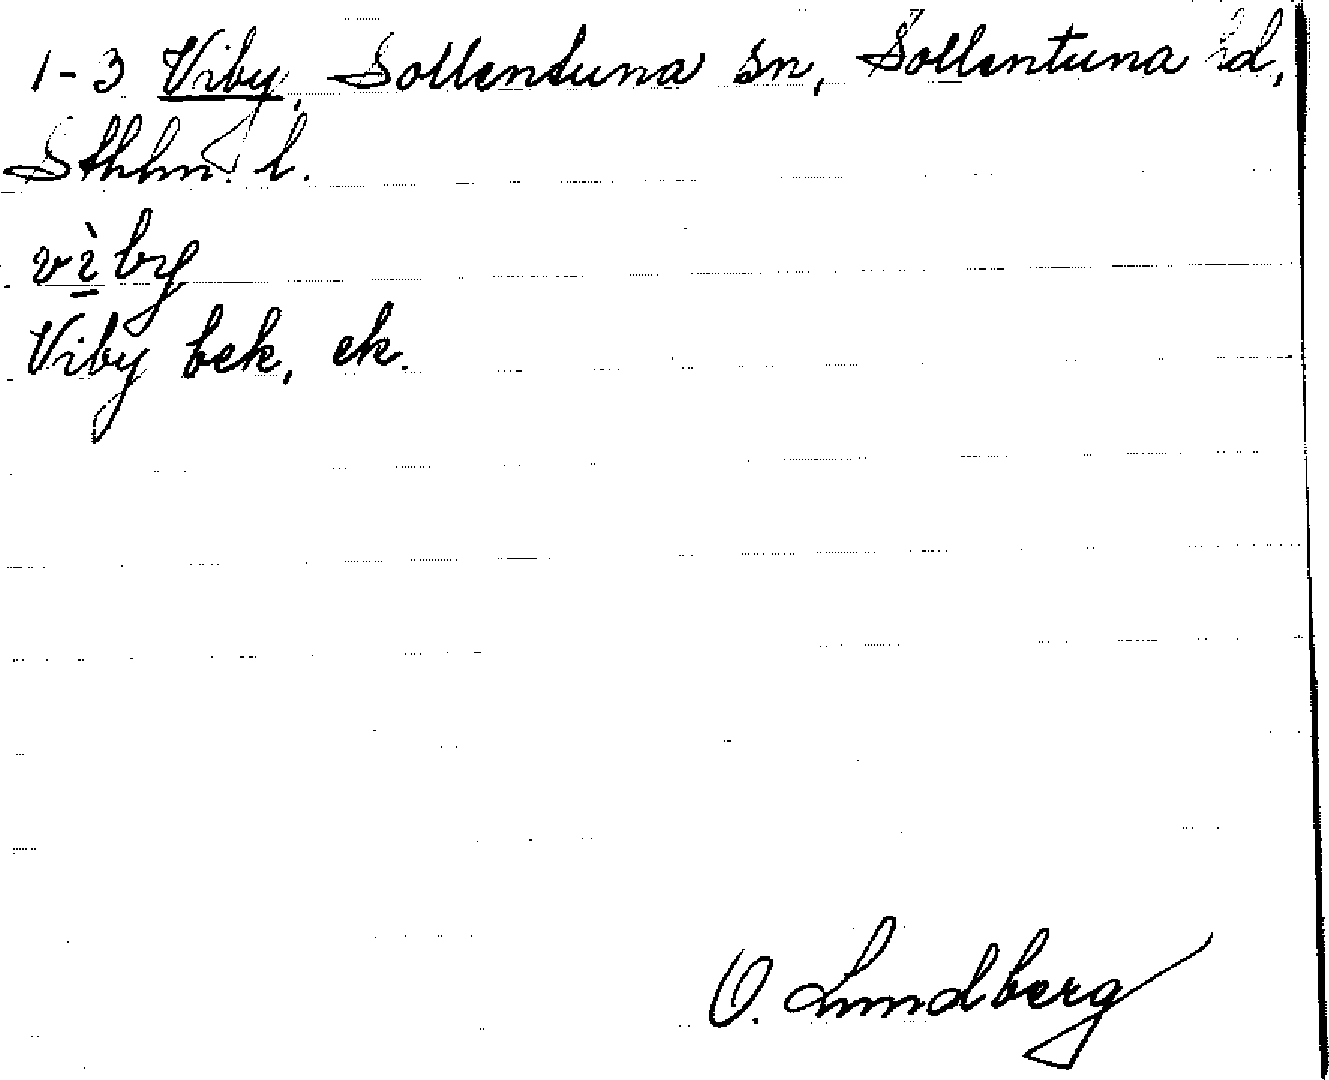 1-3 Viby, Sollentuna sn, Sollentuna hd,
Sthlm. l.
vìby
Viby bek, ek.
O. Lundberg